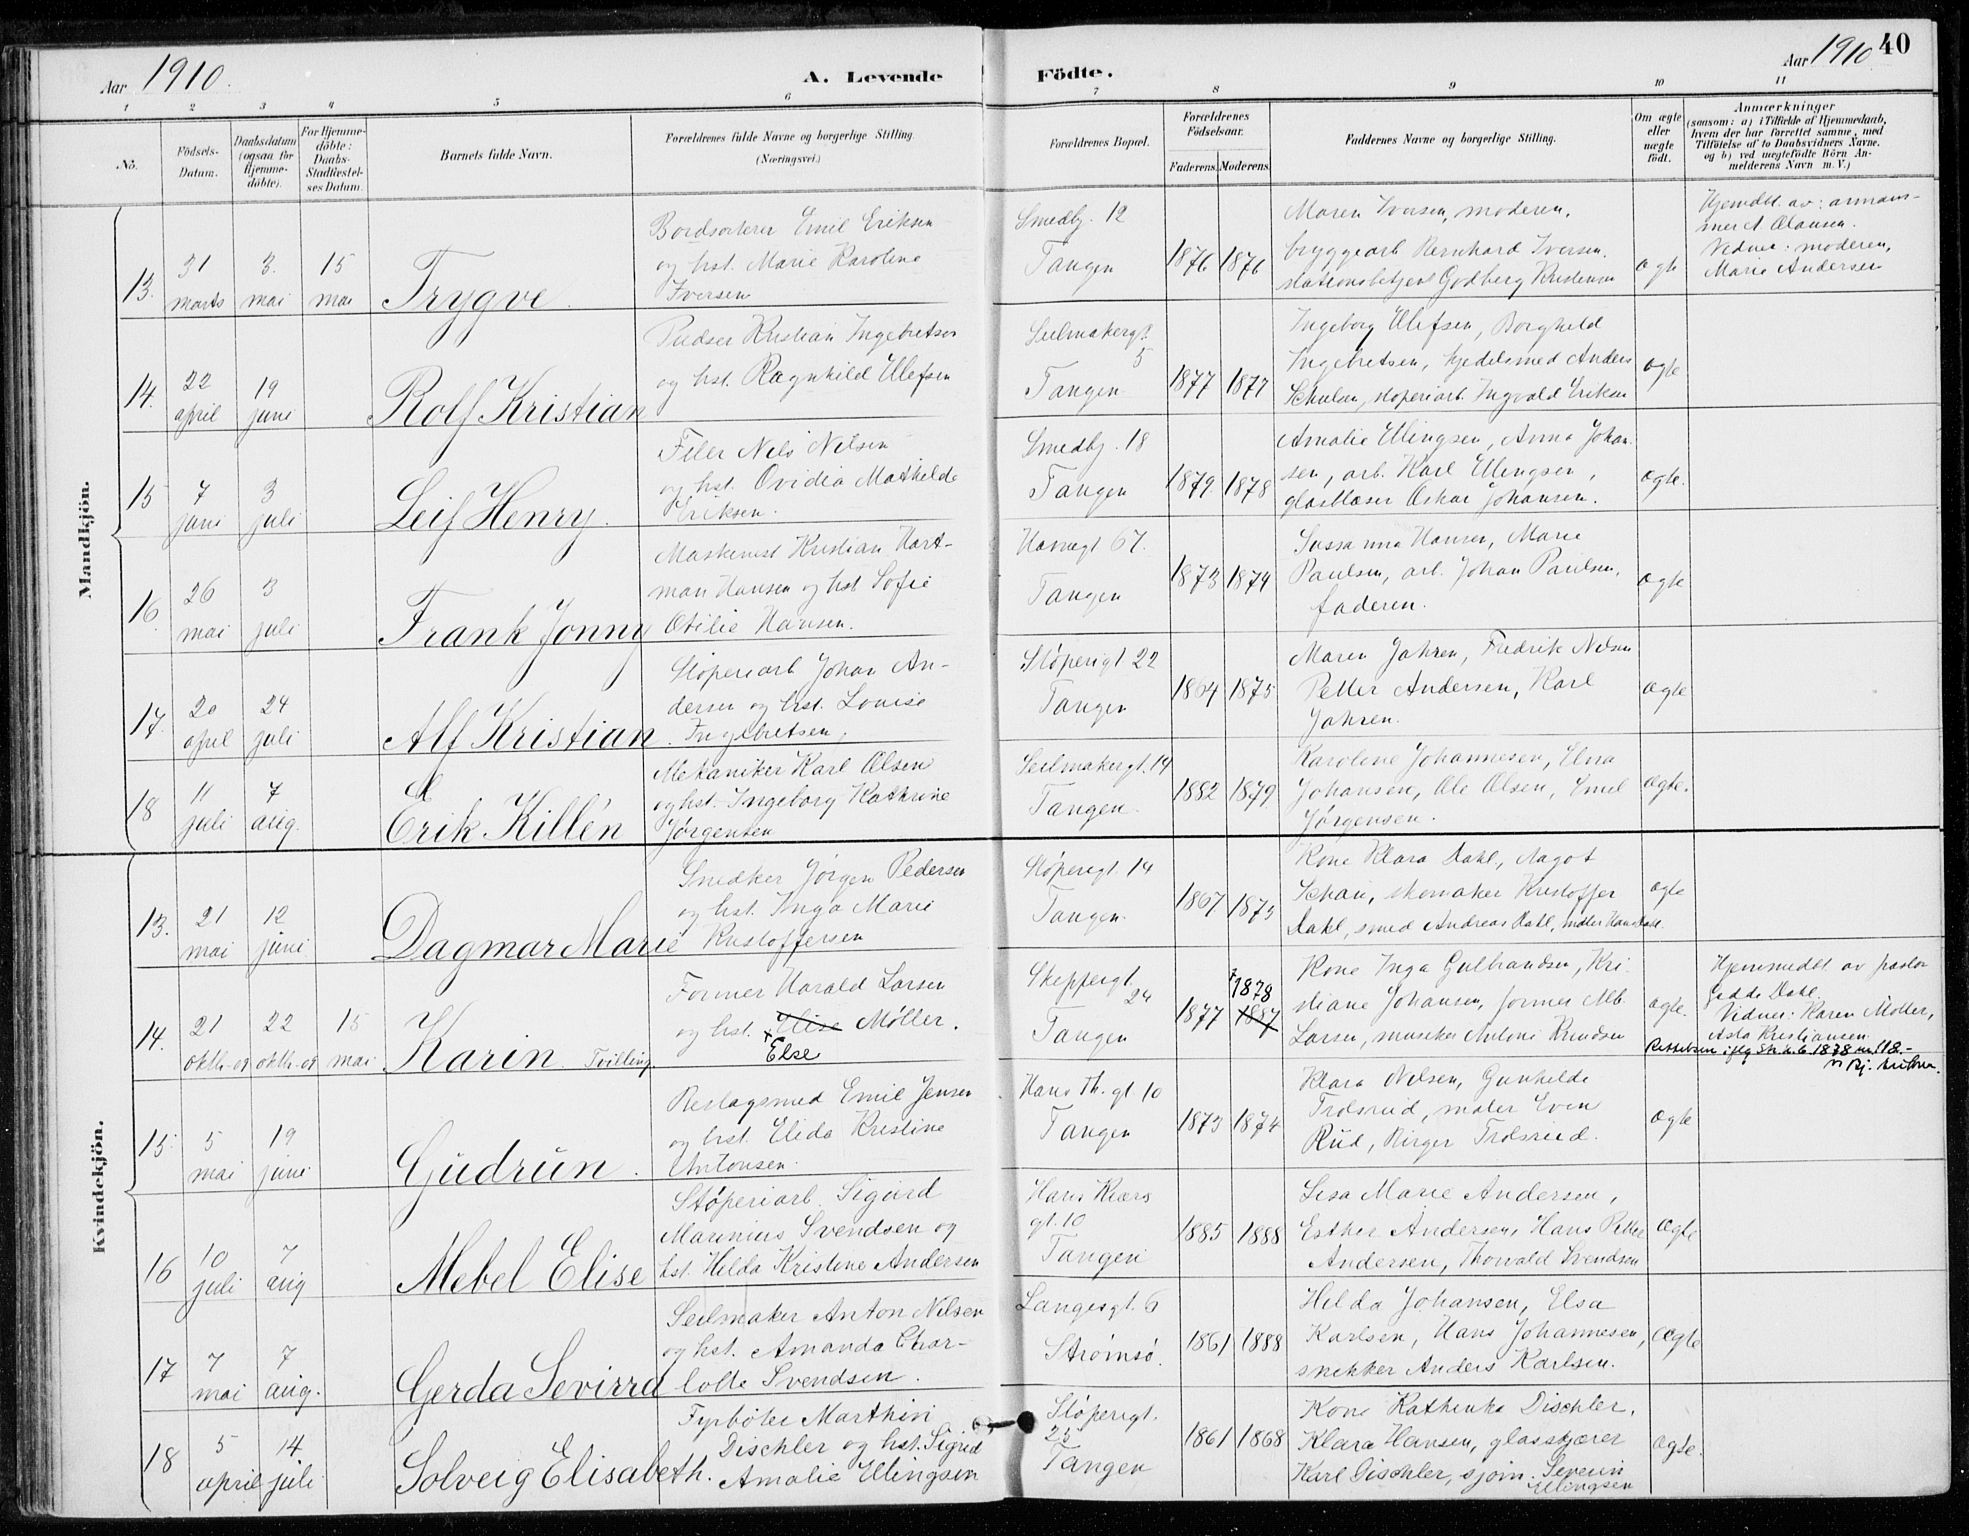 Aar 1910.
A. Levende Födte.
Aar 1910 40
1 2 3 4 5 6 7 8 9 10 11
No.
Födsels-Datum.
Daabsdatum (ogsaa for Hjemme-döbte).
For Hjemme-döbte: Daabs-Stadfæstel-ses Datum.
Barnets fulde Navn.
Forældrenes fulde Navne og borgerlige Stilling.
(Næringsvei.)
Forældrenes Bopæl.
Forældrenes Födselsaar.
Faderens. Moderens.
Faddernes Navne og borgerlige Stilling.
Om ægte eller uægte födt.
Anmærkninger
(saasom: a) i Tilfælde af Hjemmedaab,
hvem der har forrettet samme, med
Tilföielse af to Daabsvidners Navne.
og b) ved uægtefödte Börn An-
melderens Navn m. V.)
Mandkjön.
13. 31 marts 3. mai 15 mai Trygve.
Bordsorterer Emil Eriksen
og hst. Marie Karoline
Iversen
Smedbj. 12
Tangen
1876 1876
Maren Iversen, moderen,
bryggearb Bernhard Iversen,
stationsbetjent Godberg Kristensen
ægte
Hjemdbt. av:
A Clausen.
Vidner: moderen,
Marie Andersen
14. 22 april 19 juni Rolf Kristian
Pudser Kristian Ingebretsen
og hst. Ragnhild Ulefsen
Seilmakergt.
5
Tangen
1877 1877
Ingeborg Ulefsen, Borghild
Ingebretsen, kjedelsmed Anders
støperiarb. Ingvald Eriksen
ægte
15 7 juni 3 juli Leif Henry.
Filer Nils Nilsen
og hst. Ovidia Mathilde
Eriksen.
Smedbj. 18
Tangen
1879. 1878
Amalie Ellingsen, Anna Johan-
sen, arb. Karl Ellingsen,
glasblæser Oskar Johansen.
ægte.
16 26 mai 3 juli Frank Jonny
Maskinist Kristian Hart-
man Hansen og hst Sofie
Otilie Hansen.
Havnegt 67.
Tangen
1873 1874
Sussanna Hansen, Marie
Paulsen, arb. Johan Paulsen,
faderen.
ægte
17. 20 april 24 juli Alf Kristian
Støperiarb Johan An-
dersen og hst. Louise
Ingebretsen,
Støperigt 22
Tangen
1864 1875
Maren Jahren, Fredrik Nilsen
Petter Andersen, Karl
Jahren.
ægte
18 11 juli 7 aug. Erik Killén
Mekaniker Karl Olsen
og hst. Ingeborg Kathrine
Jørgensen
Seilmakergt. 14
Tangen.
1882 1879
Karoline Johannesen, Elna
Johansen, Ole Olsen, Emil
Jørgensen.
ægte.
Kvindekjön.
13. 21 mai 12 juni Dagmar Marie
Snedker Jørgen Pedersen
og hst. Inga Marie
Kristoffersen
Støperigt. 14
Tangen.
1867 1873
Kone Klara Dahl, Aagot
skomaker Kristoffer
Dahl, smed Andreas Dahl, maler Hans Dahl.
ægte
14. 21 oktb. 09 22 oktb. 09 15 mai Karin Tvilling.
Former Harald Larsen
og hst. Elise Møller.
x Else
Skippergt.
24
Tangen
1877 x 1878 1887
Kone Inga Gulbrandsen, Kri-
stiane Johansen, former Alb.
Larsen, musiker Antoni Knudsen
ægte.
Hjemmedbt. av pastor
Gedde Dahl.
Vidner: Karen Møller,
Asta Kristiansen
Rettelsen iflg 1878 nr. 18.-
15. 5 mai 19 juni Gudrun.
Beslagsmed Emil Jensen
og hst. Elida Kristine
Antonsen.
Hans Th. gt 10
Tangen
1873 1874
Klara Nilsen, Gunhilda
Trosrud, maler Even
Rud, Birger Trosrud.
ægte
16 10 juli 7 aug Mebel Elise
Støperiarb. Sigurd
Marinius Svendsen og
hst. Hilda Kristine Andersen
Hans Kiærs
gt. 10
Tangen
1885 1888
Lisa Marie Andersen,
Esther Andersen, Hans Petter
Andersen, Thorvald Svendsen
ægte
17 7 mai 7 aug. Gerda Sevirra
Seilmaker Anton Nilsen
og hst. Amanda Char-
lotte Svendsen.
Langesgt. 6
Strømsø.
1861 1888
Hilda Johansen, Elsa
Karlsen, Hans Johannesen,
snekker Anders Karlsen.
ægte
18 5 april 14 juli Solveig Elisabeth.
Fyrbøter Marthin
Dischler og hst. Sigrid
Amalie Ellingsen
Støperigt.
25
Tangen
1861 1868
Kone Kathinka Dischler,
Klara Hansen, glasskjærer
Karl Dischler, sjøm. Severin
Ellingsen
ægte.